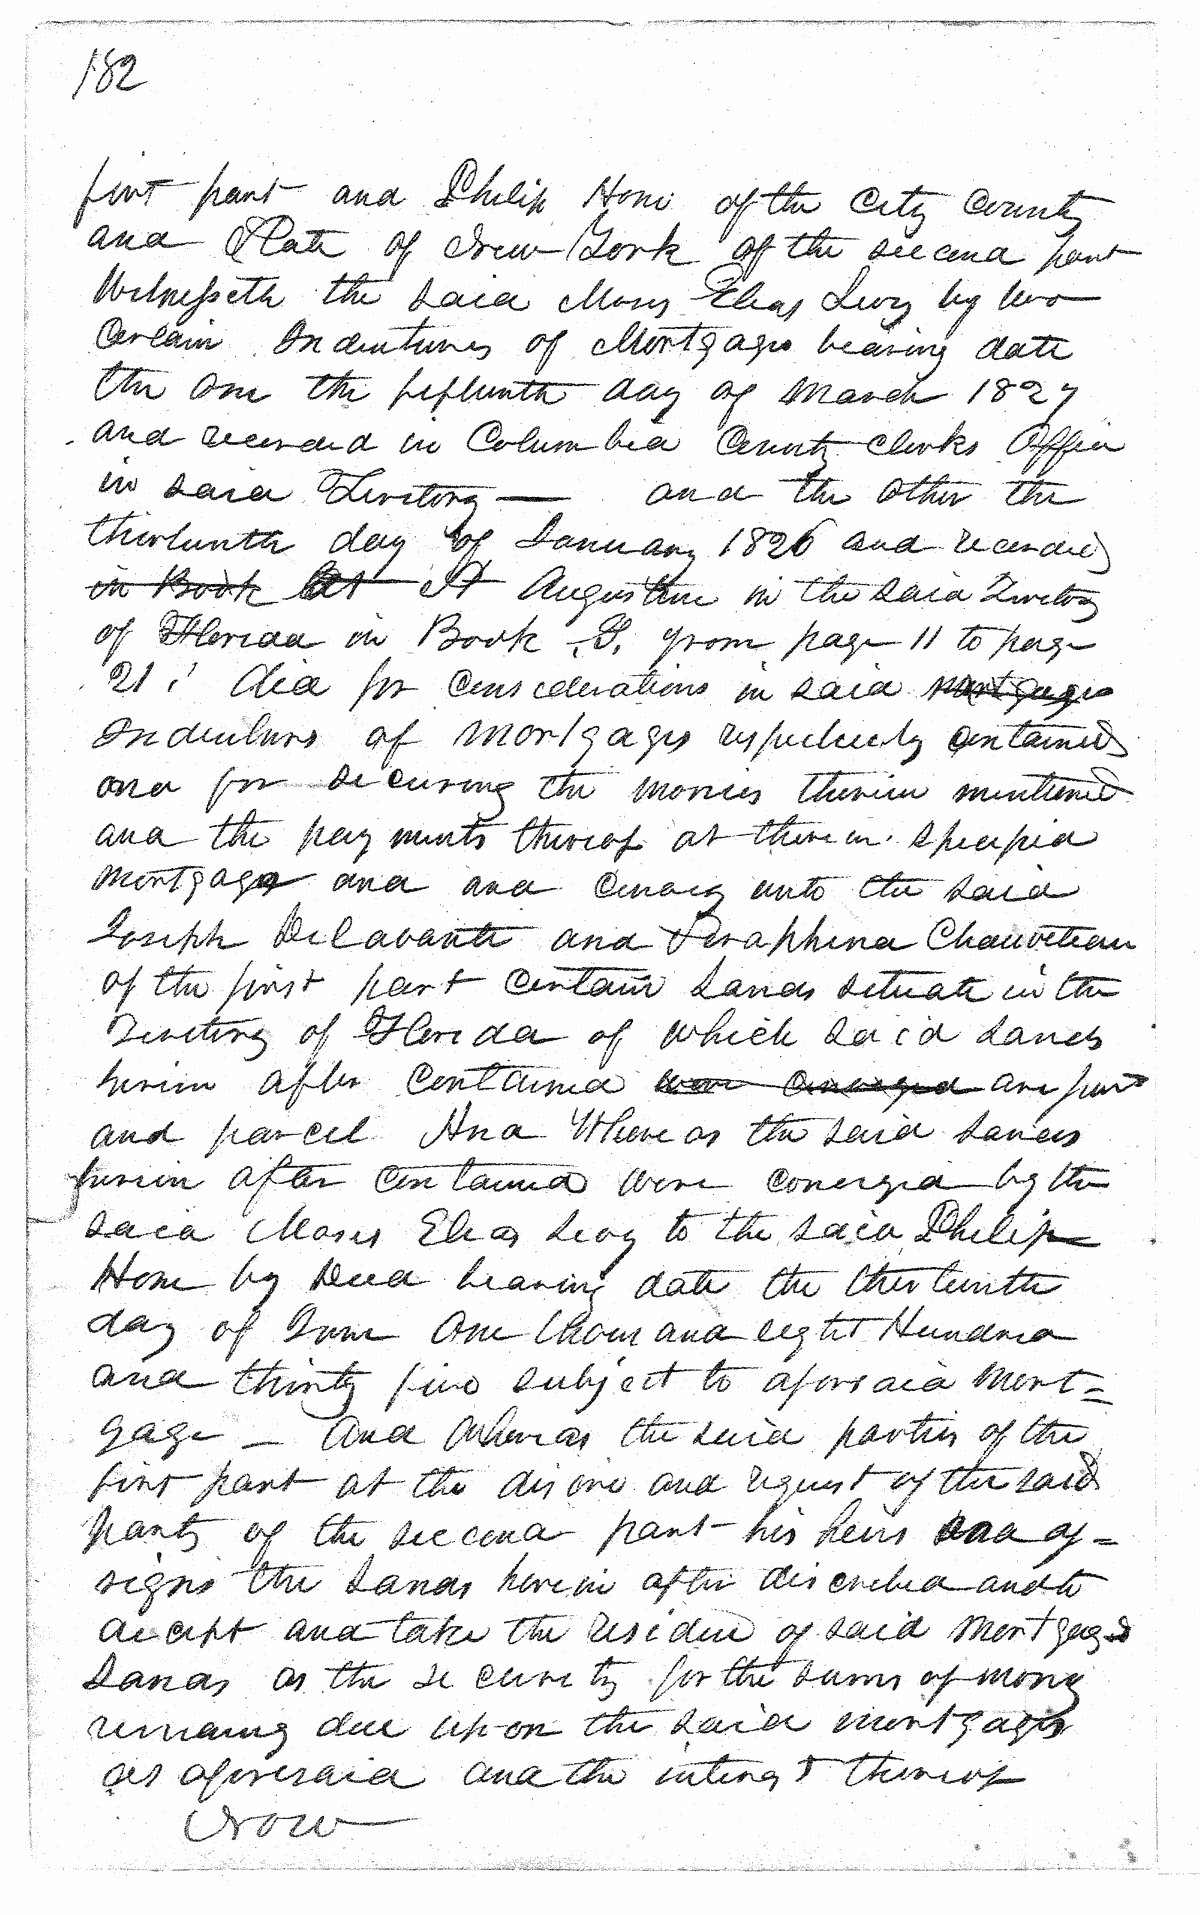 182
first part and Philip Hone of the City County
and State of New York of the second part
Witnesseth the said Moses Elias Levy by two
Certain Indentures of Mortgage bearing date
the one the fifteenth day of March 1827
and recorded in Columbia County clerks Office
in said Territory — and the other the
thirteenth day of January 1826 and recorded
in Book At St Augustine in the said Territory
of Florida in Book G. from page 11 to page
21; did for Considerations in said Mortgages
Indentures of Mortgages respectively contained
and for securing the monies therein mentioned
and the payments thereof at therein specified
Mortgage and and Convey unto the said
Joseph Delavante and Seraphina Chauviteau
of the first part certain Lands situate in the
Territory of Florida of which said Lands
herein after Contained were conveyed are part
and parcel And Whereas the said Lands
herein after Contained were conveyed by the
said Moses Elias Levy to the said Philip
Hone by Deed bearing date the thirteenth
day of June One thousand eight Hundred
and thirty five subject to aforesaid Mort=
gage — And Whereas the said parties of the
first part at the desire and request of the said
Party of the second part his heirs and as=
signs the Lands herein after described and to
accept and take the residue of said Mortgaged
Lands as the security for the sums of money
remaining due upon the said mortgages
as aforesaid and the interest thereof
Now